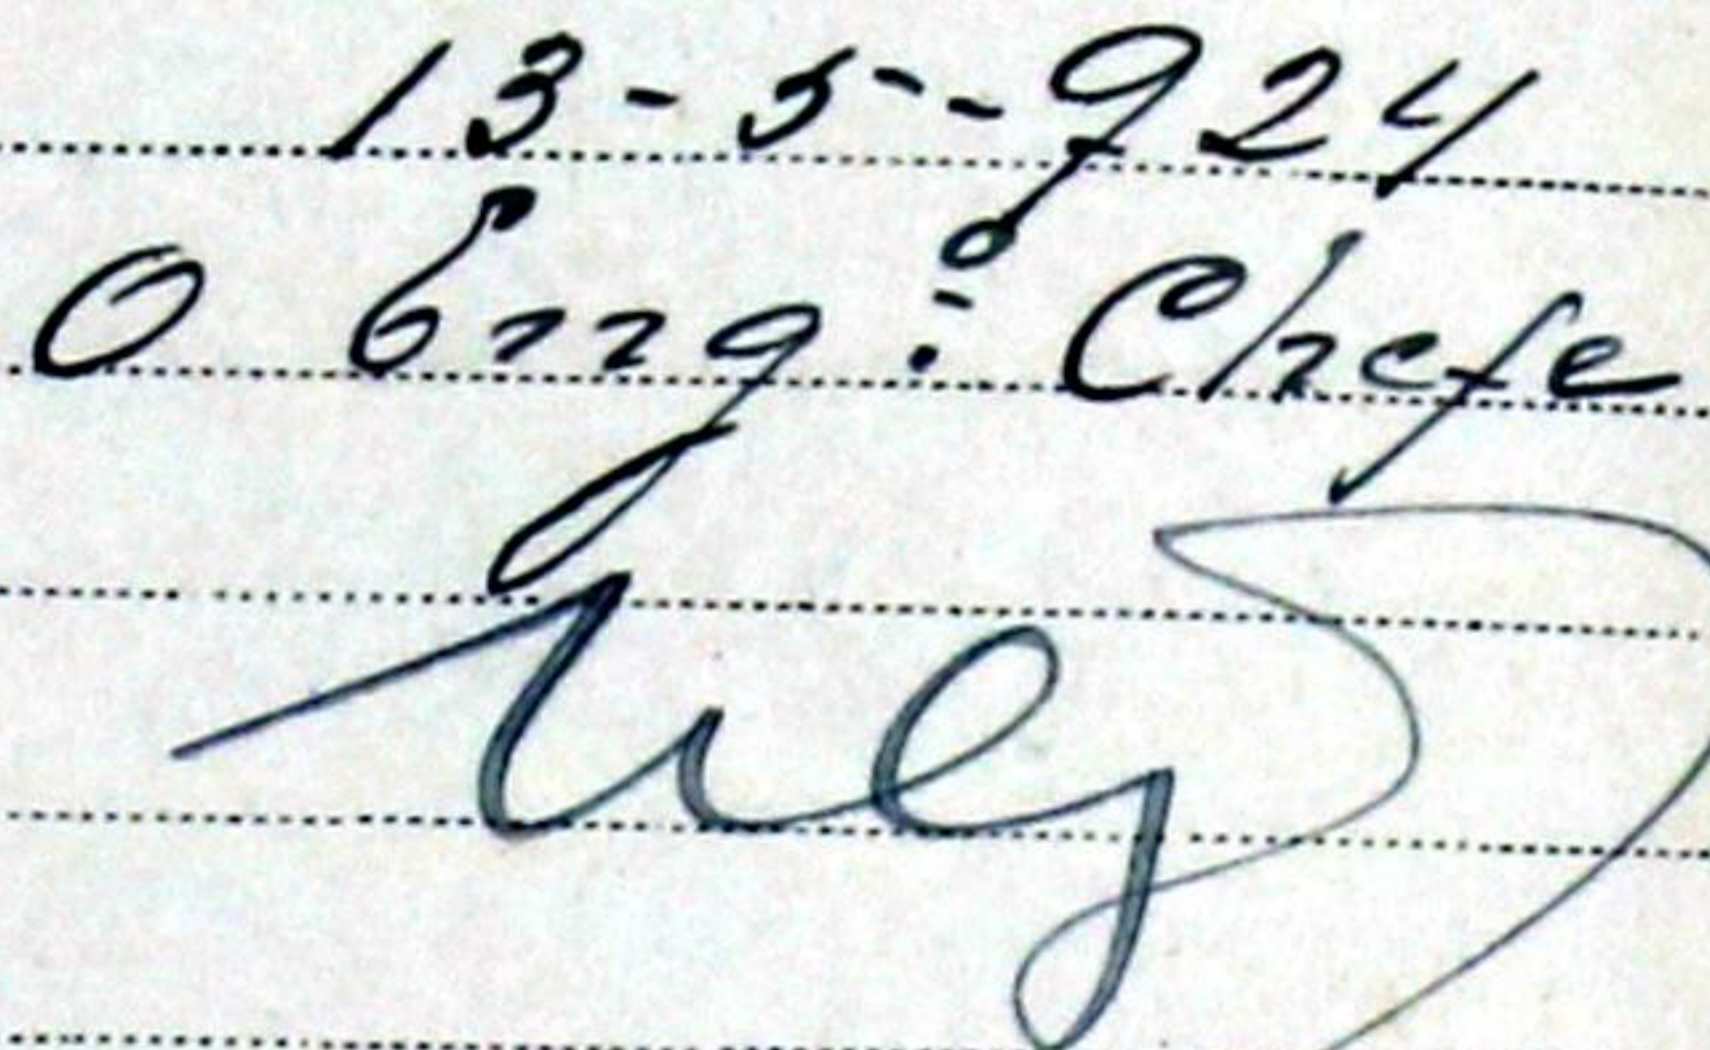 13-5-924
O Engº Chefe